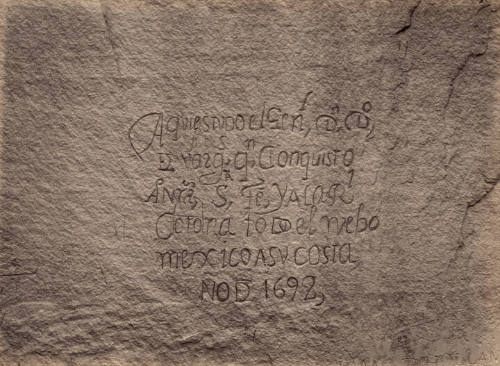 Aqui estubo el Genl, Dn. Do,
D Vargs, qn, Conquisto
Anra, S, Fe, Y Ala Rl
Corona todo el nvebo
mexico Asv costa
NO D 1692,